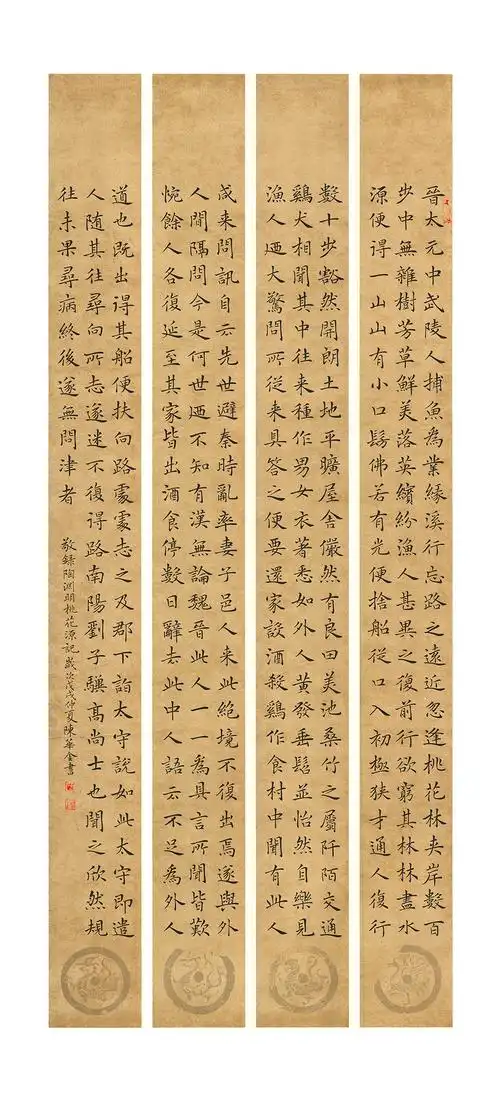 晉太元中武陵人捕魚為業緣溪行忘路之遠近忽逢桃花林夾岸數百
步中無雜樹芳草鮮美落英繽紛漁人甚異之復前行欲窮其林林盡水
源便得一山山有小口髣佛若有光便捨船從口入初極狹才通人復行
數十步豁然開朗土地平曠屋舍儼然有良田美池桑竹之屬阡陌交通
鷄犬相聞其中往来種作男女衣著悉如外人黄發垂髫並怡然自樂見
漁人廼大驚問所從来具答之便要還家設酒殺鷄作食村中聞有此人
咸来問訊自云先世避秦時亂率妻子邑人来此絕境不復出焉遂與外
人間隔問今是何世廼不知有漢無論魏晉此人一一為具言所聞皆歎
惋餘人各復延至其家皆出酒食停數日辭去此中人語云不足為外人
道也既出得其船便扶向路處處志之及郡下詣太守說如此太守即遣
人随其往尋向所志遂迷不復得路南陽劉子驥高尚士也聞之欣然規
往未果尋病終後遂無問津者
敬錄陶淵明桃花源記歲次戊戌仲夏陳華金書